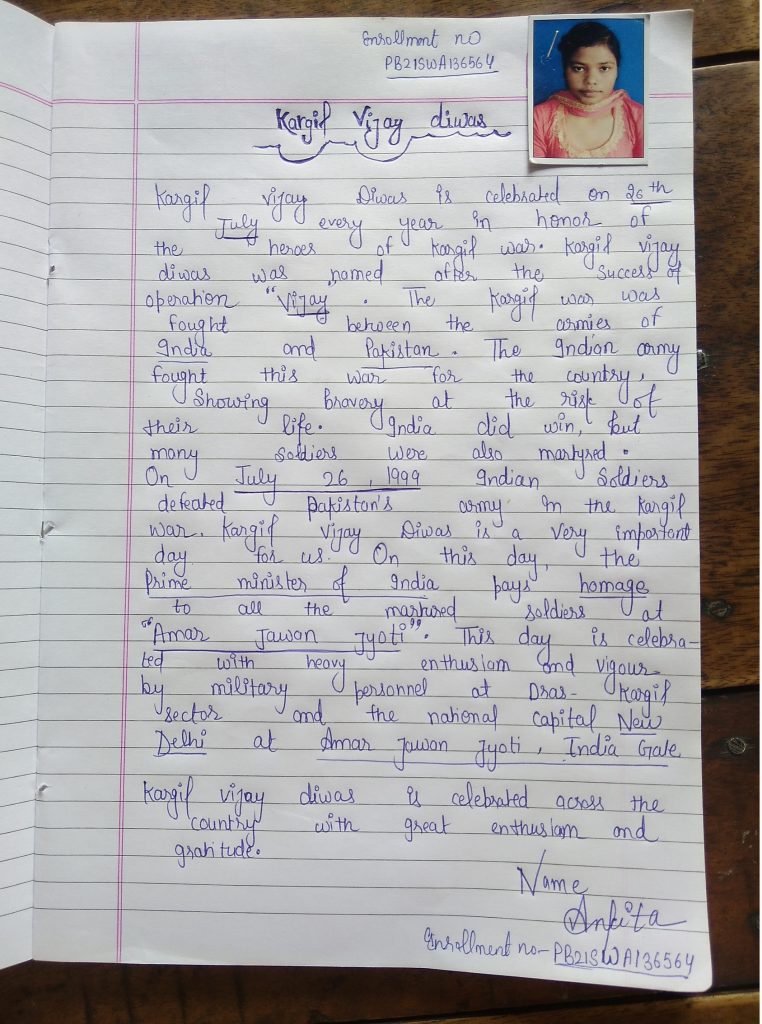 Enrollment no
PB21SWA136564
Kargil Vijay diwas
Kargil vijay Diwas is celebrated on 26th
July every year in honor of
the heroes of Kargil war. Kargil vijay
diwas was named after the success of
operation "Vijay". The Kargil war was
fought between the armies of
India and Pakistan. The Indian army
fought this war for the country,
Showing bravery at the risk of
their life. India did win, but
many soldiers were also martyred.
On July 26, 1999 Indian Soldiers
defeated pakistan's army in the Kargil
war. Kargil Vijay Diwas is a very important
day for us. On this day, the
Prime minister of India pays homage
to all the martured soldiers at
"Amar Jawan Jyoti". This day is celebra-
ted with heavy enthusiam and vigour
by military personnel at Dras- Kargil
sector and the national capital New
Delhi at Amar Jawan Jyoti, India Gate
Kargil vijay diwas is celebrated across the
country with great enthusiam and
gratitude.
Name
Ankita
Enrollment no- PB21SWA136564